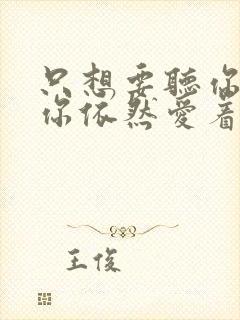 只想要聽你
你依然愛着
王俊